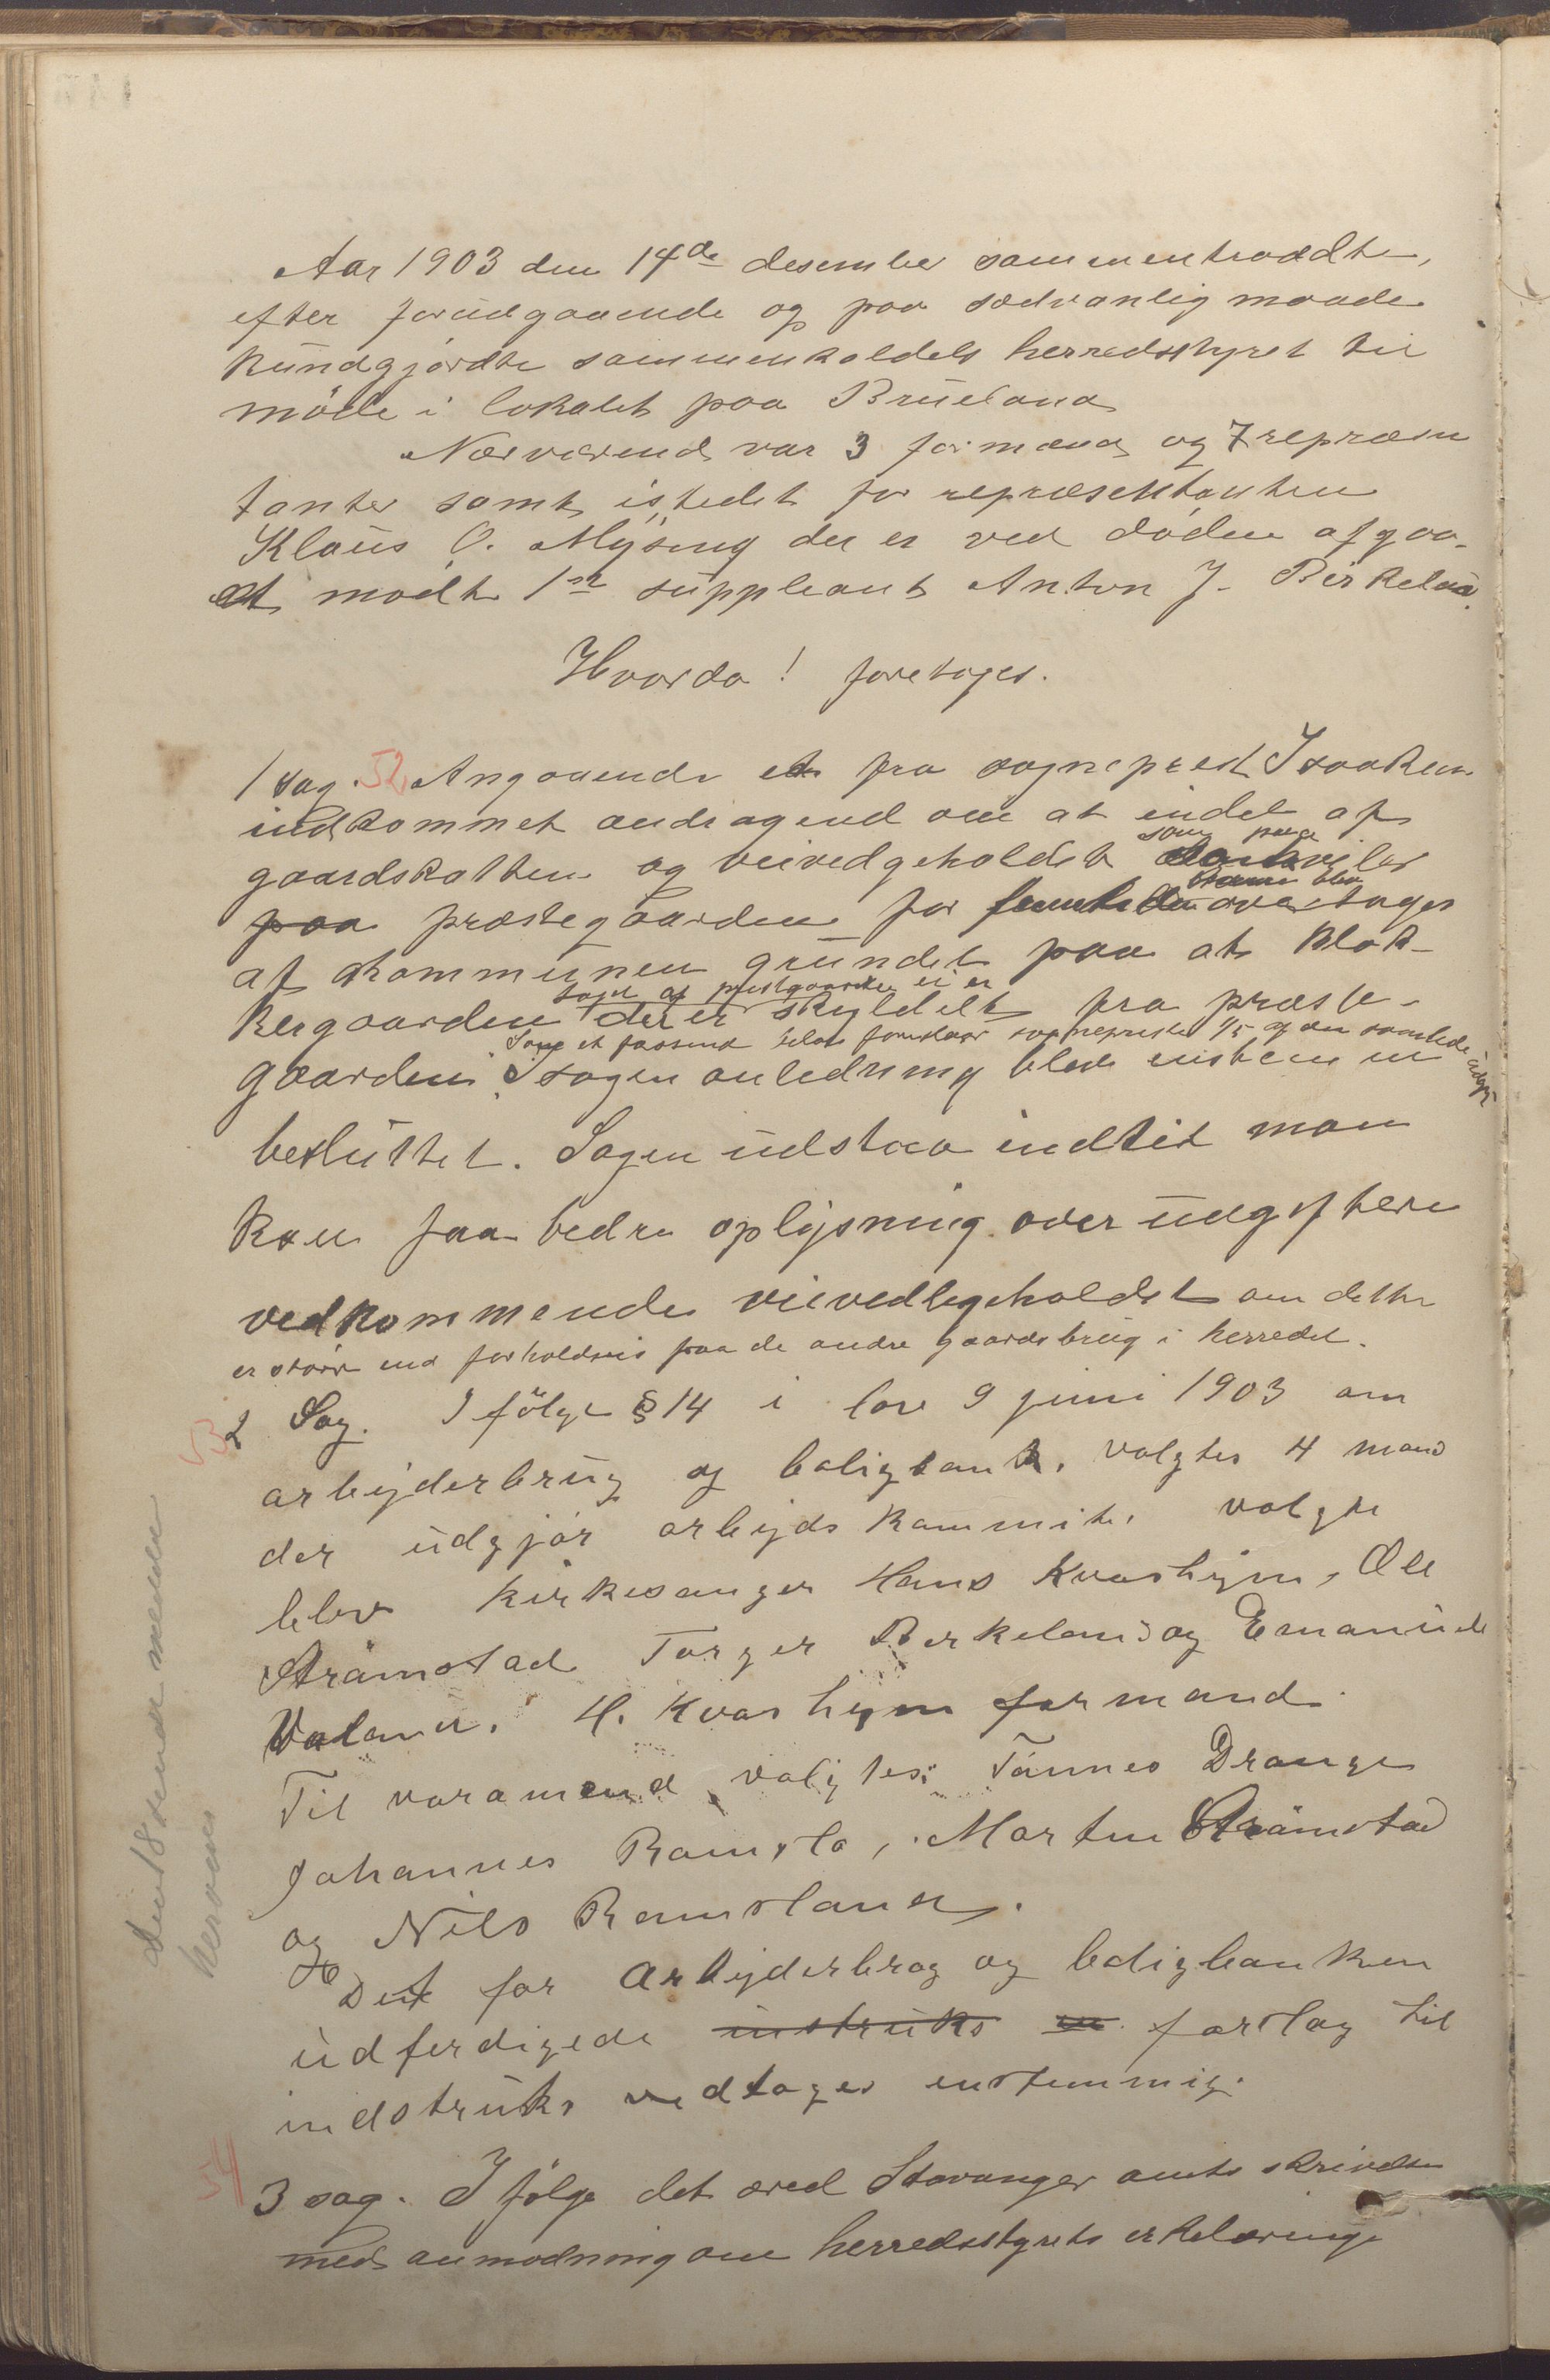 Aar 1903 den 14de desember sammentraadte,
efter forudgaaende og paa sædvanlig maade
kundgjordte sammenkaldels herredstyret til
møde i lokalet paa Brueland
Nærværend var 3 formænd og 7 repræsen
tanter samt istedet for repræsentanten
Klaus O. Mysing der er ved døden afgaa-
et mødte 1ste suppleant Anton J. Birkeland.
Hvorda! foretoges.
1 sag. 52 Angaaende et fra sogneprest Isaaksen
indkommet andragend om at endel af
som paa
gaardskatten og veivedgeholdet hviler
paa præstegaarden for overtages
af kommunen grundet paa at klok-
tagen af prestgaarden ei er
kergaarden der er skyldelt fra præste-
Som et passend beløb foreslaar sognepresten 1/5 af den samlede udgift
gaarden. I sagen anledning blev enstemm
besluttet. Sagen udstaa indtil man
kan faa bedre oplysning over udgiftere
vedkommende veivedligeholdet om dette
er større end forholdsvis paa de andre gaardsbrug i herredet.
53 2 Sag. I følge § 14 i lov 9 juni 1903 om
arbeyderbrug og boligbank, valgtes 4 mand
der udgjør arbeyds kommite. valgte
blev kirkesanger Hans Kvasheym, Ole
Strømstad Torger Birkeland og Emanuel
Valand. H. Kvasheym formand.
Til varamænd valgtes: Tønnes Drange
Johannes Ramsla, Marten Strømstad
og Nils Ramsland.
Det for arbeyderbrug og boligbanken
udferdigede instruks forslag til
indstruks vedtages enstemmig.
54 3 sag. I følge det æred Stavanger amts skrivelse
med anmodning om herredsstyrets erklæring
Den 18 sendt meddel
herom